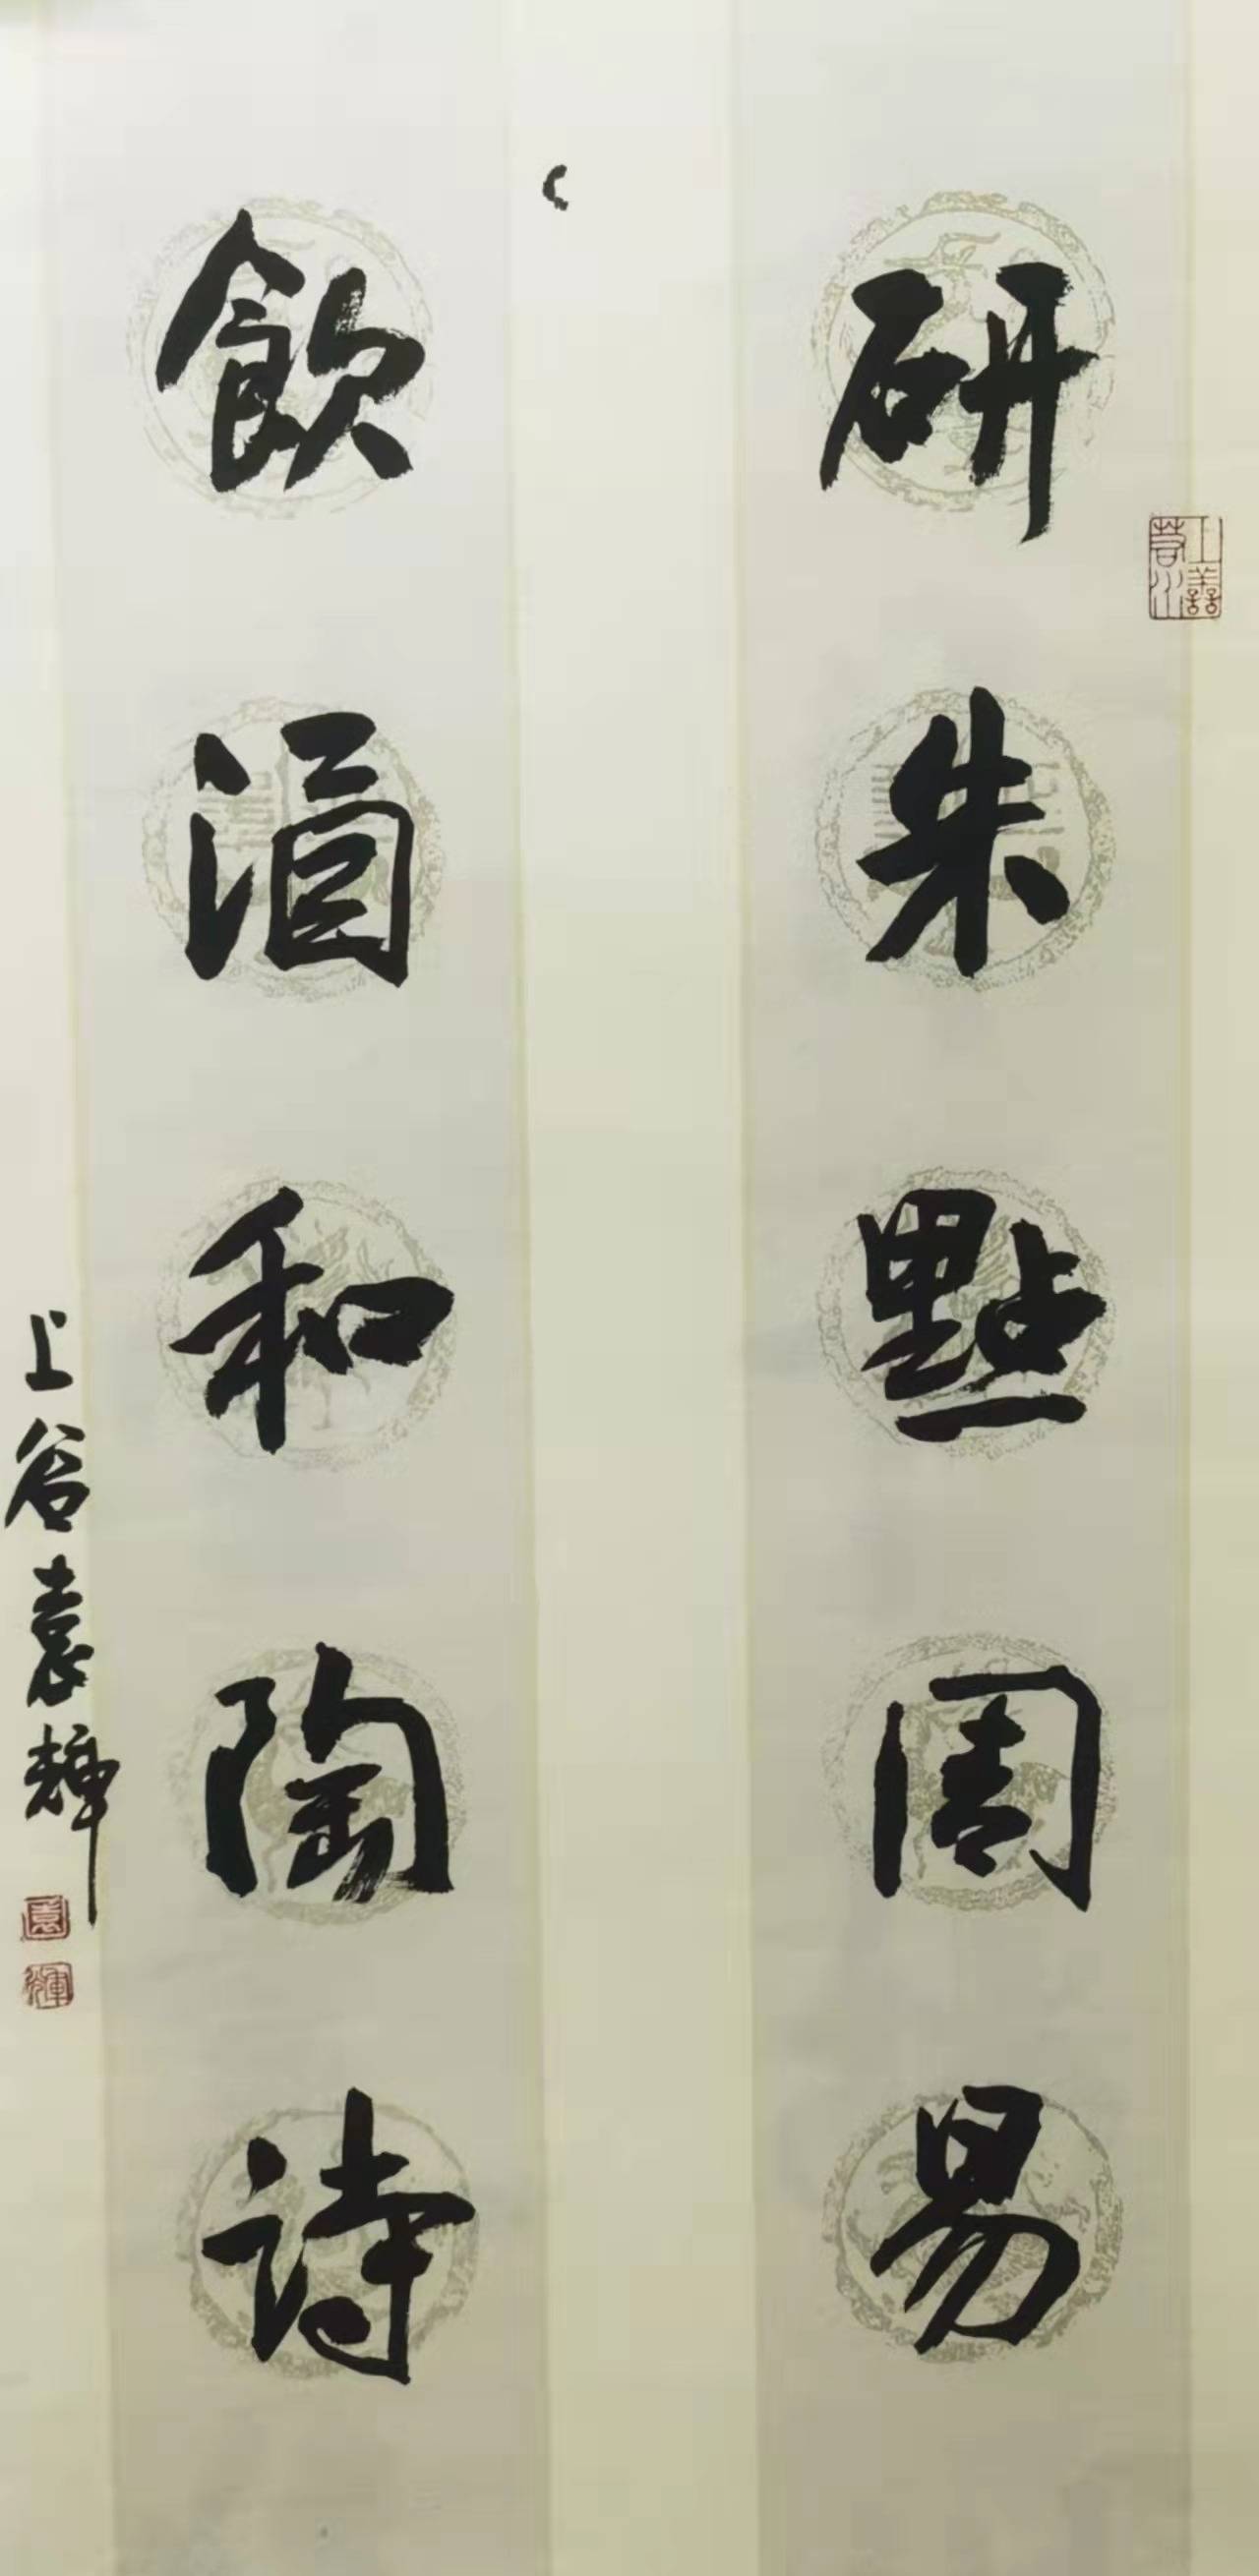 研朱點周易
飲酒和陶詩
上谷袁輝
上善若水
袁輝